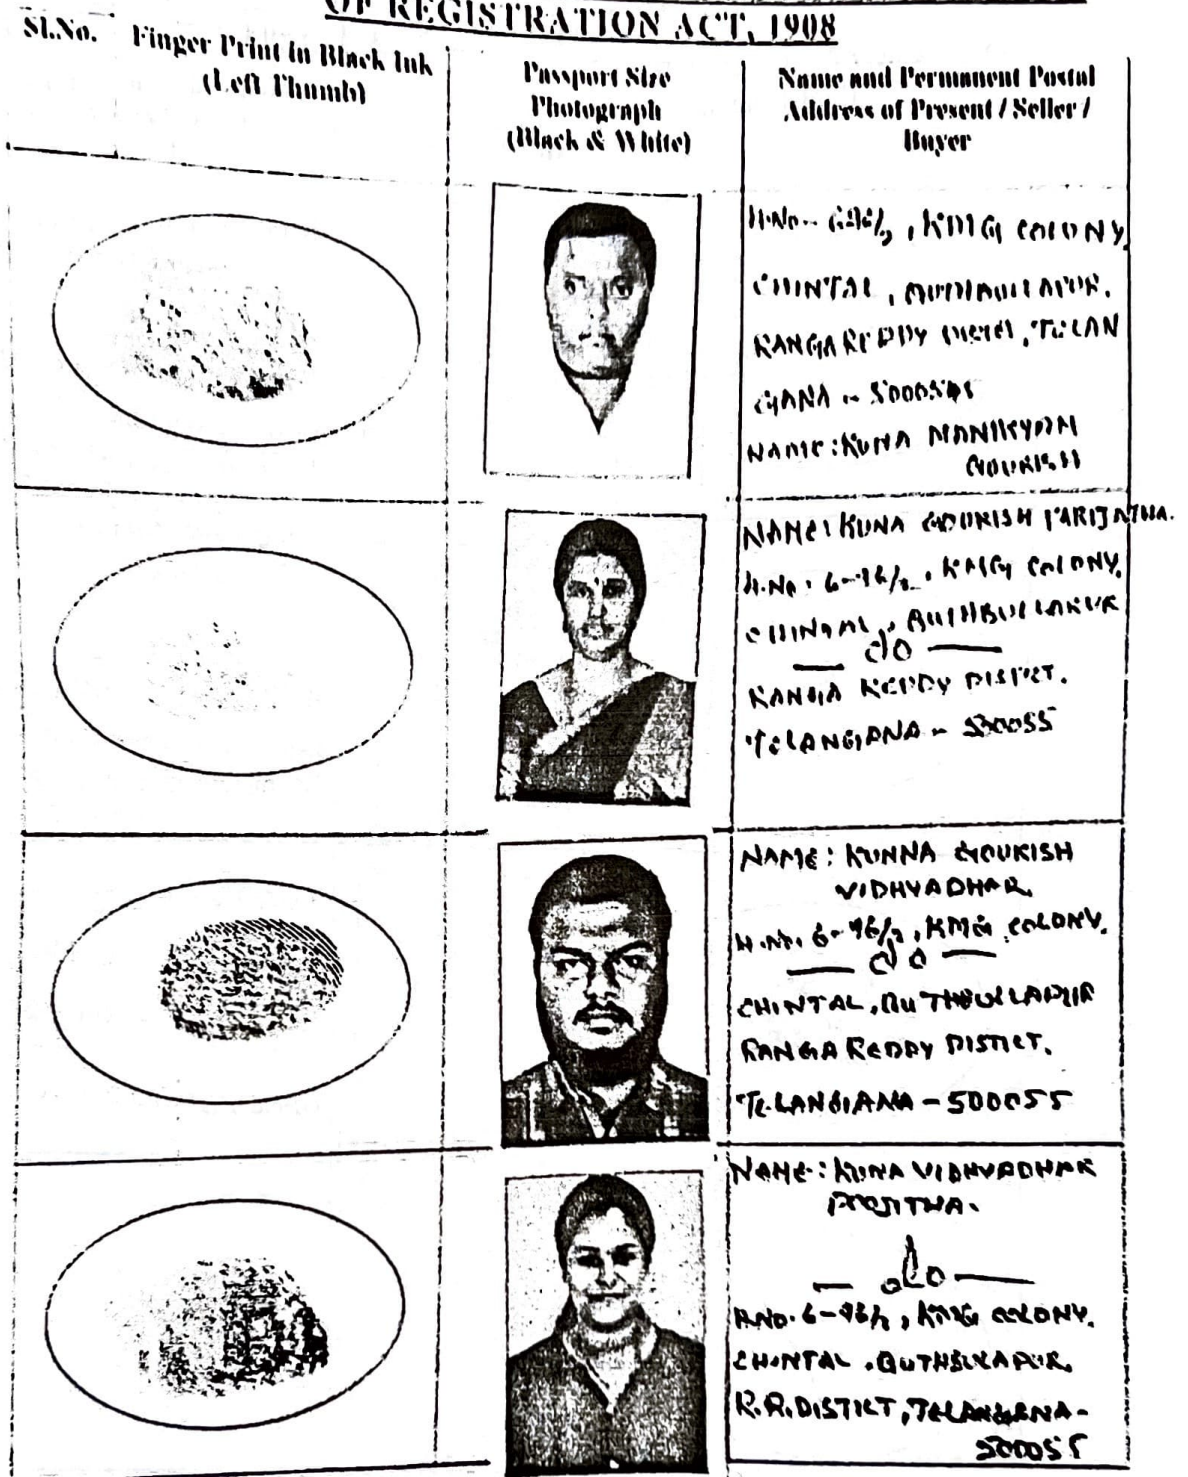 OF REGISTRATION ACT, 1908
Sl.No.
Finger Print in Black Ink
(Left Thumb)
Passport Size
Photograph
(Black & White)
Name and Permanent Postal
Address of Present / Seller /
Buyer
H.No- , KMG COLONY
CHINTAL ,
RANGA REDDY , TELAN
GANA -
NAME: KUNA MANIKYAM
GOURISH
NAME: KUNA GOURISH PARIJATHA.
H.No. 6-96/2, KMG COLONY.
CHINTAL, QUTHBULLAPUR
— do —
RANGA REDDY DISTICT.
TELANGANA - 500055
NAME: KUNNA GOURISH
VIDHYADHAR
H.NO. 6-96/2, KMG COLONY.
— do —
CHINTAL, QUTHBULLAPUR
RANGA REDDY DISTICT.
TELANGANA - 500055
NAME: KUNA VIDHYADHAR
— do —
H.NO. 6-96/2, KMG COLONY.
CHINTAL, QUTHBULLAPUR.
R.R. DISTICT, TELANGANA-
500055